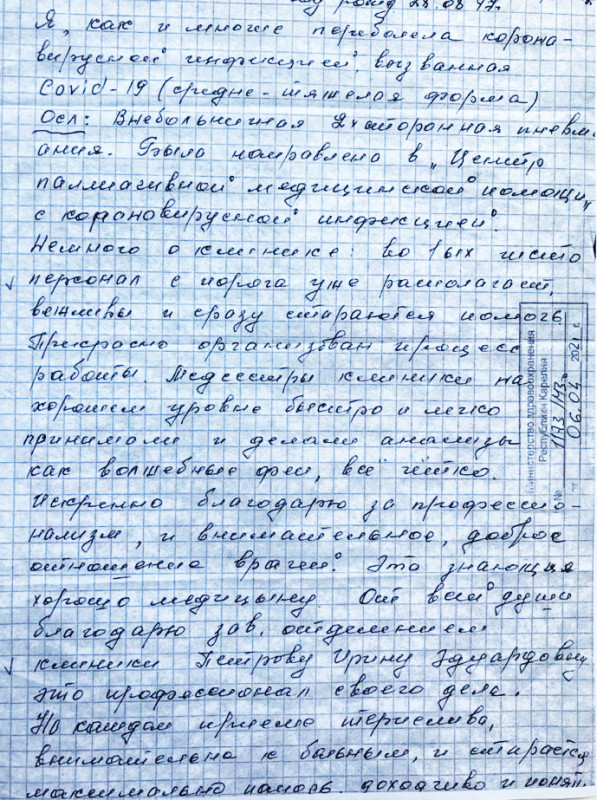 28.08.47г.
Я, как и многие переболела корона-
вирусной инфекцией. вызванная
Covid-19 (средне-тяжелая форма)
Осл: Внебольничная 2хсторанная пневм
ания. Была направлена в "Центр
паллиативной медицинской помощи"
с корановирусной инфекцией.
Немного о клинике: во 1ых чисто
персонал с порога уже располагает,
вежливы и сразу стараются помочь.
Прекрасно организован процесс
работы. Медсестры клиники на
хорошем уровне быстро и легко
принимали и делали анализы
как волшебные феи, всё чётко.
искренно благодарю за професcио-
нализм, и внимательное, доброе
отношение врачей. Это знающие
хорошо медицыну. От всей души
благодарю зав. отделением
клиники Петрову Ирину Эдуардовну
это професcионал своего дела.
На каждом приеме терпелива,
внимательна к больным, и старается
максимально помочь. доходчиво и понят.
Министерство здравоохранения
Республики Карелия
№ 1173/МЗ-
06.04 2021 г.